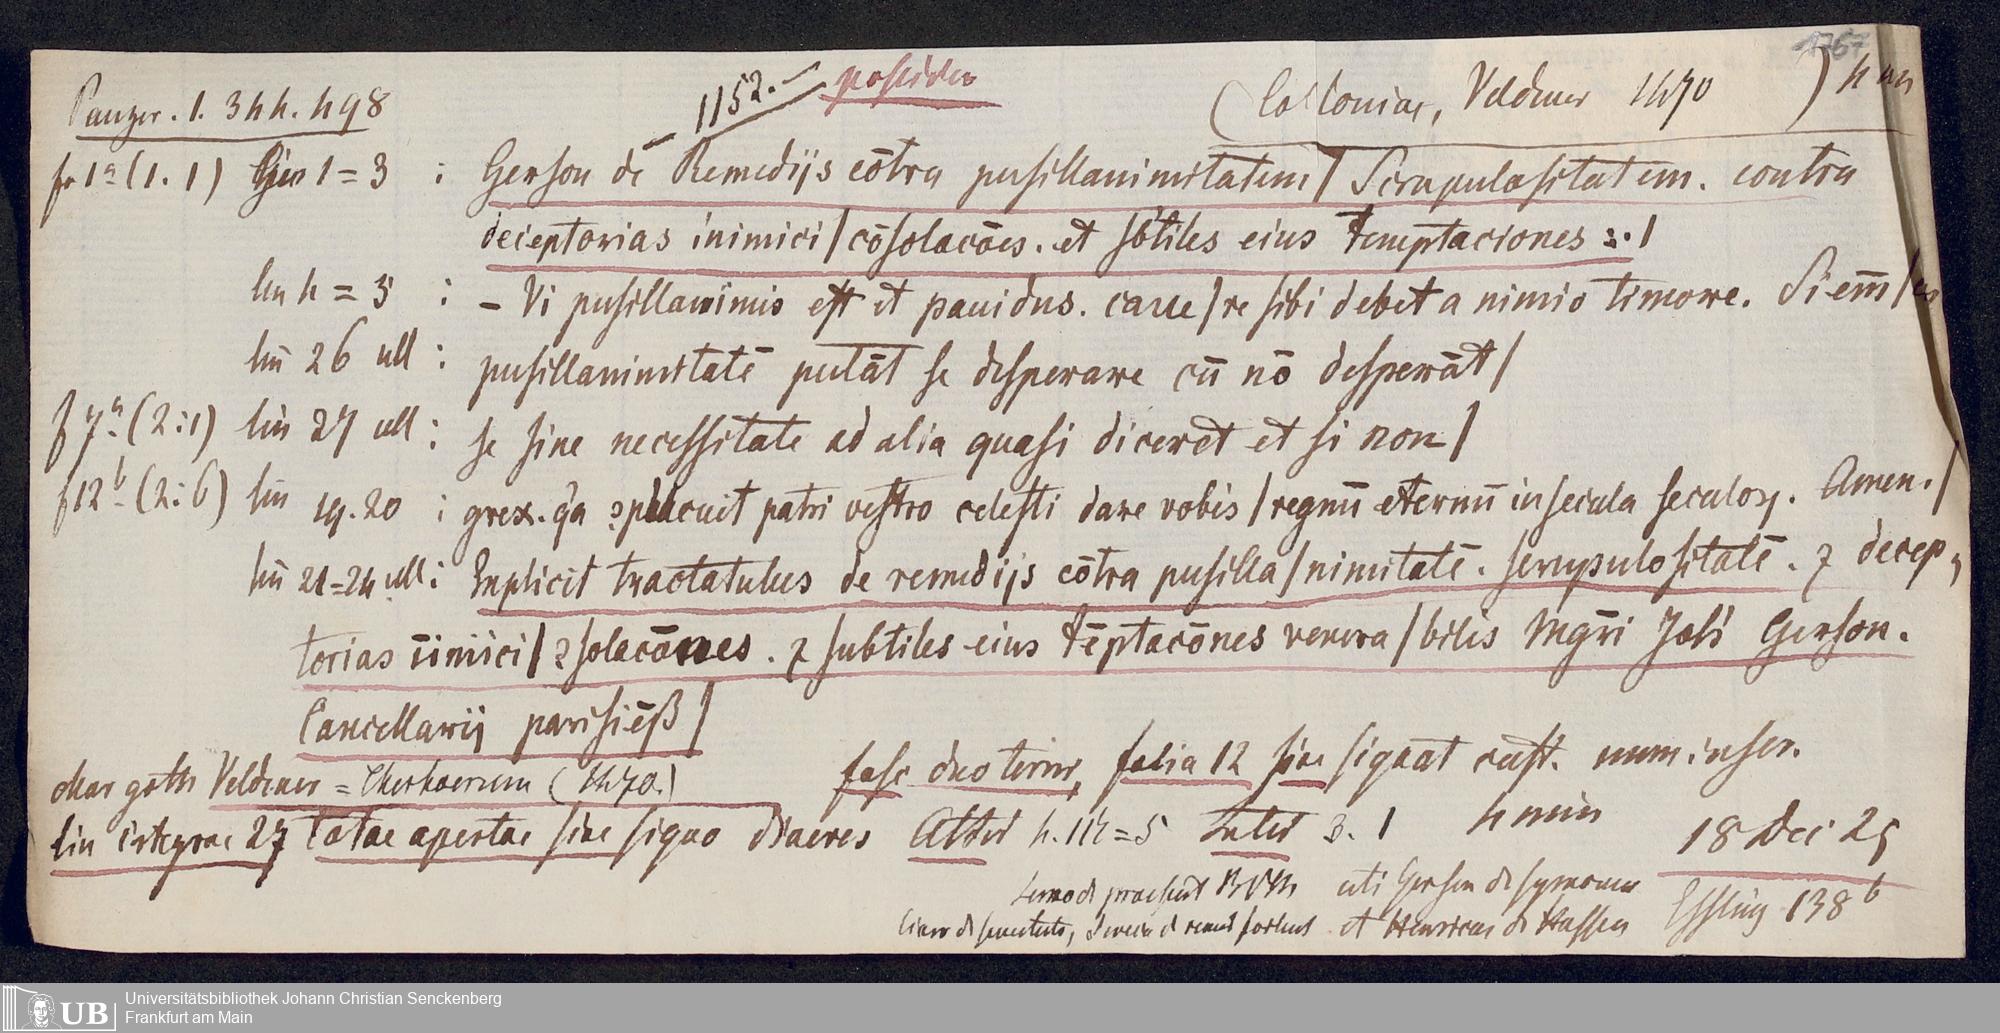 1767
Panzer. 1. 344. 498
1152.- possidео
(Coloniae, Veldener 1470) 4 min
fo 1a (1.1) lin 1=3 : Gerson de Remedijs cōtra pusillanimitatem/ Scrupulositatem. contra
deceptorias inimici/ cōsolacōes. et sbtiles eius temptaciones :. /
lin 4=5 : - Vi pusillanimis est et pauidus. caue/re sibi debet a nimio timore. Si em̄/
lin 26 ult : pusillanimitatē putāt se desperare cū nō desperāt/
f 7a (2:1) lin 27 ult : se sine necessitate ad alia quasi diceret et si non/
f 12b (2:6) lin 19.20 : grex. q'a ɔplacuit patri vestro celesti dare vobis/ regnū eternū in secula seculoꝝ. Amen./
lin 21=24 ult : Explicit tractatulus de remedijs cōtra pusilla/nimitatē. scrupulositatē. ⁊ decep-
torias īimici/ ɔsolacōnes. ⁊ subtiles eius tēptacōnes venera/bilis Mgr̄i Joh̄ Gerson.
Cancellarij parisiēß/
char goth Veldener = (1470.)
fasc duo terni, folia 12 sine signat cust. num. inser.
lin integrae 27 totae apertae sine signo diaeres
Alter h. 112=5 Inter 3.1 4 min
18 Dec 25
uti Gerson de symonia
et Henricus de Hassia
Essling 138b
Universitätsbibliothek Johann Christian Senckenberg
Frankfurt am Main
UB